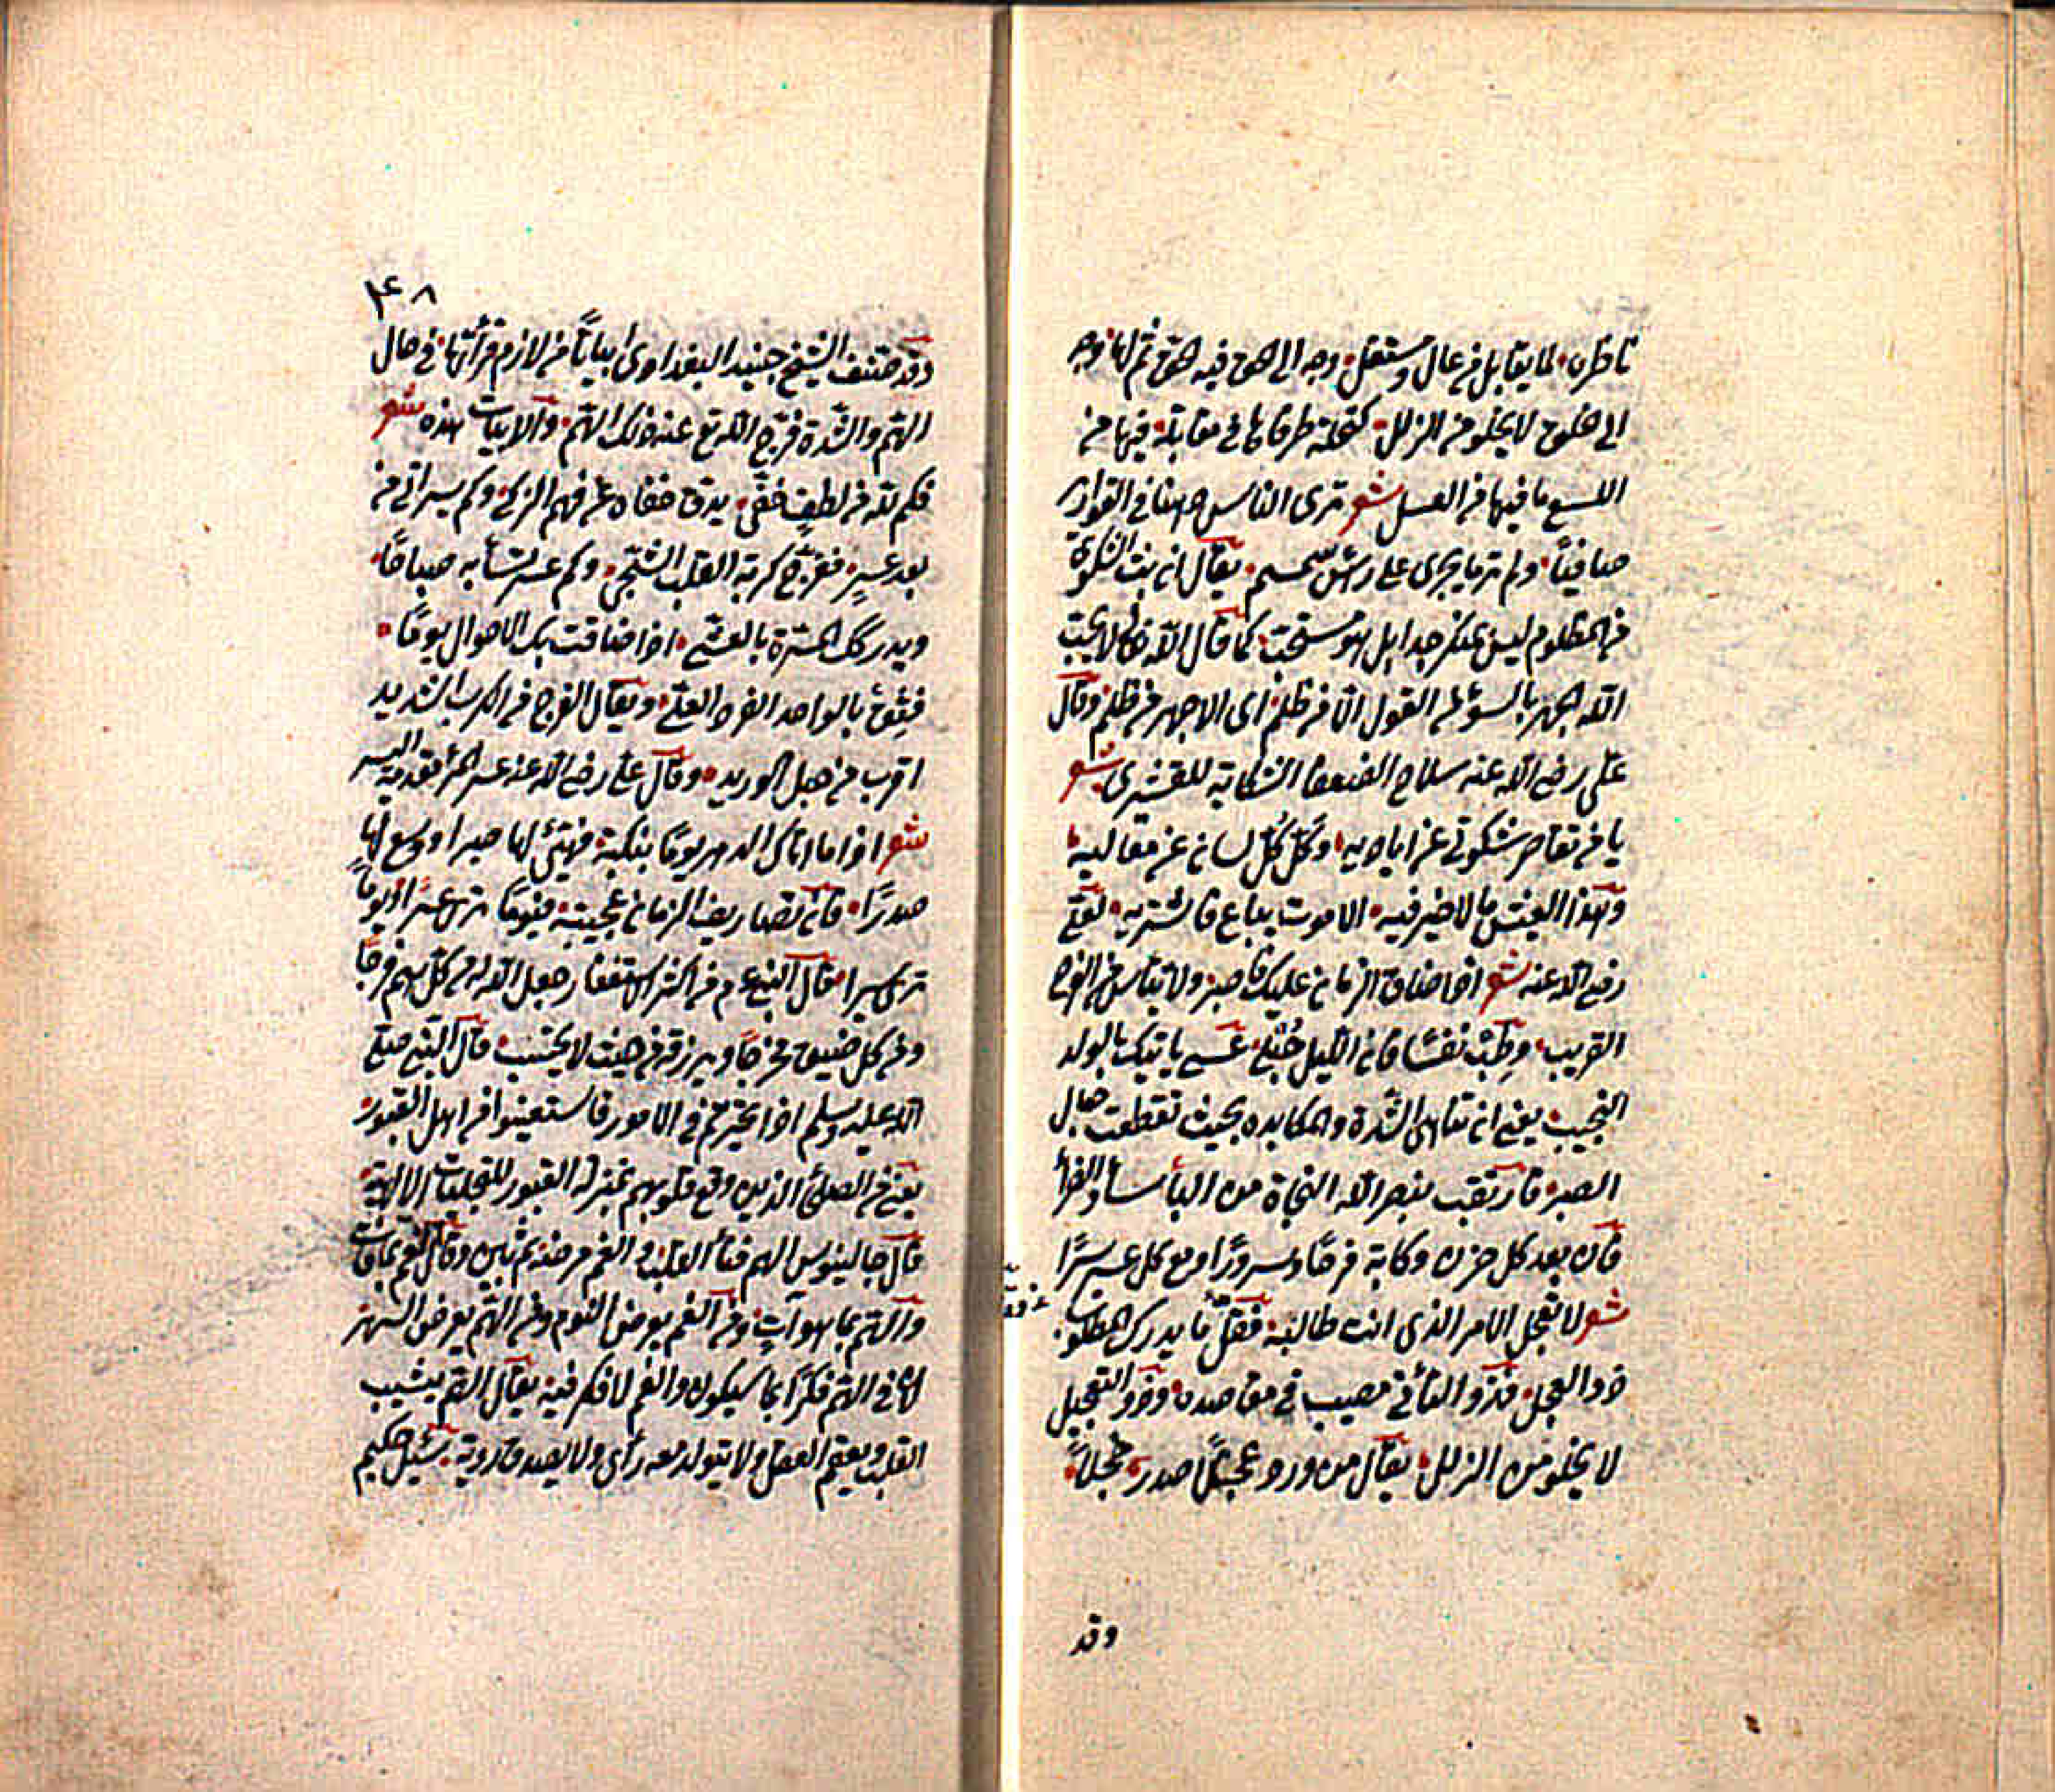 ناظرن لما يقابل من عال ومستفل وجه الى الحق فيه الحق ثم لها وجه
الى مخلوق لا يخلو من الزلل كنحلة طرفاها فى مقابلة فيها من
اللسع ما فيها من العسل شعر ترى الناس دهنا فى القوارير
صافيا ولم تر ما يجرى على رأس سمسم يقال ان بث الشكوى
من المظلوم ليس بمنكر جدا بل هو مستحب كما قال الله تعالى لا يحب
الله الجهر بالسوء من القول الا من ظلم اى الا جهر من ظلم وقال
على رضى الله عنه سلاح الضعفا الشكاية للقشيرى شعر
يا من تقاصر شكوتى عن اياديه وكل كل لسان عن معاليه
وهذا العيش ما لا خير فيه الا موت يباع فاشتريه لعلى
رضى الله عنه شعر اذا ضاق الزمان عليك فاصبر ولا تيأس من الفرج
القريب وطب نفسا فان الليل حبلى عسى ياتيك بالولد
النجيب يعنى ان تناهى الشدة والمكابده بحيث تقطعت حبال
الصبر فارتقب بنصر الله النجاة من البأساء والضراء
فان بعد كل حزن وكابة فرحا وسرورا ومع كل عسر يسرا
شعر لا تعجل الامر الذى انت طالبه فقل ما يدرك المطلوب
ذو العجل فذو التأنى مصيب فى مقاصده وذو التعجل
لا يخلو من الزلل يقال من ورد عجلا صدر خجلا
وقد
۴۸
وقد صنف الشيخ جنيد البغداوى ابياتا من لازم قرأتها فى حال
الهم والشدة فرج الله تع عنه ذلك الهم والابيات هذه شعر
فكم لله من لطف خفى يدق خفاه عن فهم الزكى وكم يسر اتى من
بعد عسر ففرج كربة القلب الشجى وكم عسر تسأ به صباحا
ويدركك المسرة بالعشى اذا ضاقت بك الاحوال يوما
فثق بالواحد الفرد العلى ويقال الفرج من الكرب الشديد
اقرب من حبل الوريد وقال على رضى الله عنه عسر المرء مقدمة اليسر
شعر اذا ما اتاك الدهر يوما بنكبة فهيئ لها صبرا ووسع لها
صدرا فان تصاريف الزمان عجيبة فيوما ترى عسرا ويوما
ترى يسرا قال النبى عم من اكثر الاستغفار جعل الله له من كل هم فرجا
ومن كل ضيق مخرجا ويرزقه من حيث لا يحتسب قال النبى صلى
الله عليه وسلم اذا تحيرتم فى الامور فاستعينوا من اهل القبور
يعنى من الصلحأ الذين وقع قلوبهم بمنزلة القبور للتجليات الالهية
قال جالينوس الهم فنأ القلب والغم مرضه ثم تبين وقال الغم بما فات
والهم بما هو آت ومن الغم يعرض النوم ومن الهم يعرض السهر
لان فى الهم فكرا بما سيكون والغم لا فكر فيه يقال الهم يشيب
القلب ويعقم العقل ولا يتولد معه رأى ولا يصدق روية سئل حكيم